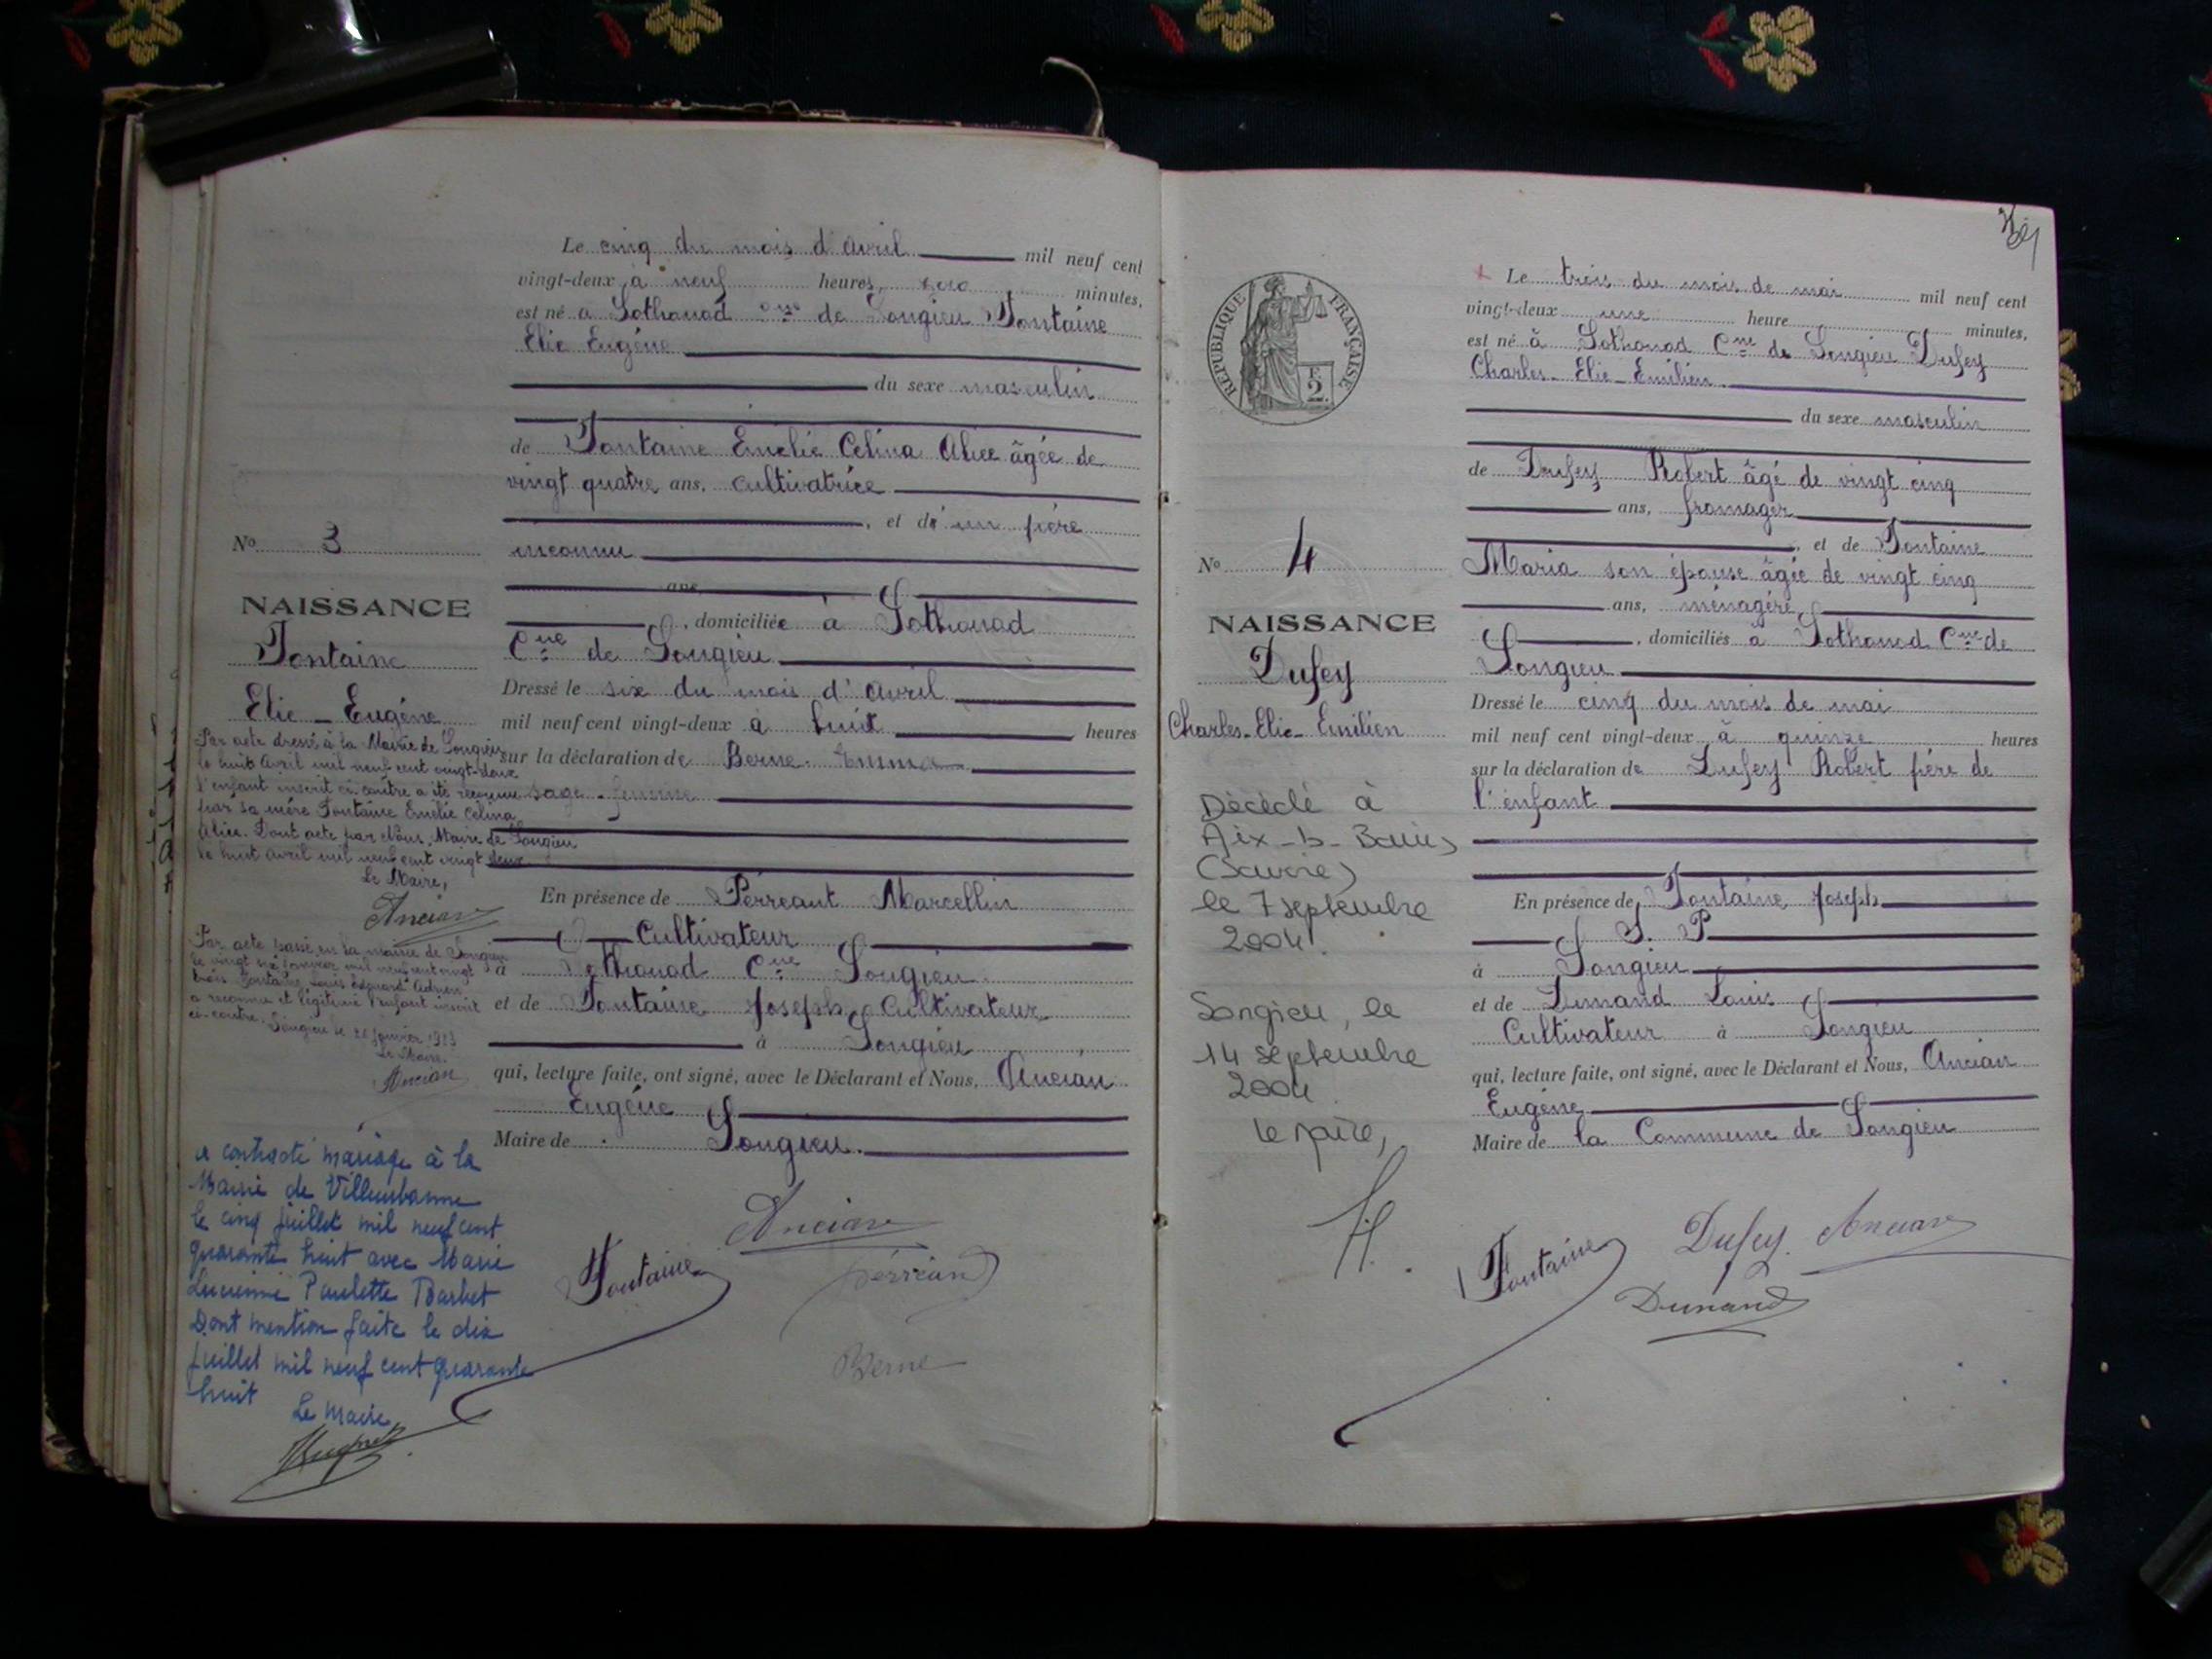 Le cinq du mois d'avril mil neuf cent
vingt-deux à neuf heures, zéro minutes,
est né à Sothonod Cne de Songieu Fontaine
Elie Eugène
du sexe masculin
de Fontaine Emélie Celina Alice âgée de
vingt quatre ans, cultivatrice
, et d'un père
inconnu
ans
, domiciliée à Sothonod
Cne de Songieu
Dressé le six du mois d'avril
mil neuf cent vingt-deux à huit heures
sur la déclaration de Berne Emma
sage-femme
En présence de Perreant Marcellin
Cultivateur
à Sothonod Cne Songieu
et de Fontaine Joseph, Cultivateur
à Songieu
qui, lecture faite, ont signé, avec le Déclarant et Nous, Ancian
Eugène
Maire de Songieu.
Ancian
Fontaine
Berne
No 3
NAISSANCE
Fontaine
Elie - Eugène
Par acte dressé à la Mairie de Songieu
le huit avril mil neuf cent vingt-deux
l'enfant inscrit ci-contre a été reconnu
par sa mère Fontaine Emélie Celina
Alice. Dont acte par Nous, Maire de Songieu
le huit avril mil neuf cent vingt deux
Le Maire,
Ancian
Par acte passé en la mairie de Songieu
le vingt six janvier mil neuf cent vingt
trois Fontaine Louis Edouard Adrien
a reconnu et légitimé l'enfant inscrit
ci-contre. Songieu le 26 janvier 1923
Le Maire.
Ancian
a contracté mariage à la
Mairie de Villeurbanne
le cinq juillet mil neuf cent
quarante huit avec Marie
Lucienne Paulette Barbet
Dont mention faite le dix
juillet mil neuf cent quarante
huit
Le Maire
RÉPUBLIQUE FRANÇAISE
F.
2.
Le trois du mois de mai mil neuf cent
vingt-deux une heure minutes,
est né à Sothonod Cne de Songieu Dufey
Charles-Elie-Emilien
du sexe masculin
de Dufey Robert âgé de vingt cinq
ans, fromager
, et de Fontaine
Maria son épouse âgée de vingt cinq
ans, ménagère
, domiciliés à Sothonod Cne de
Songieu
Dressé le cinq du mois de mai
mil neuf cent vingt-deux à quinze heures
sur la déclaration de Dufey Robert père de
l'enfant
En présence de Fontaine Joseph
S. P
à Songieu
et de Dunand Louis
Cultivateur à Songieu
qui, lecture faite, ont signé, avec le Déclarant et Nous, Ancian
Eugène
Maire de la Commune de Songieu
Fontaine Dufey. Ancian
Dunand
No 4
NAISSANCE
Dufey
Charles-Elie-Emilien
Décédé à
Aix-ls-Bains
(Savoie)
le 7 septembre
2004.
Songieu, le
14 septembre
2004.
Le Maire,